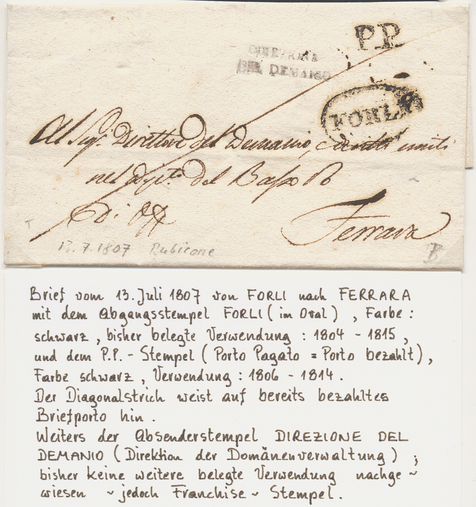 P.P.
DIREZIONE
DEL DEMANIO
FORLI
Al Sigr. Direttore del Demanio, e diritti uniti
nel Dipto. del Basso Po
Di Uff
Ferrara
13.7.1807 Rubicone
Brief vom 13. Juli 1807 von FORLI nach FERRARA
mit dem Abgangsstempel FORLI (im Oval) , Farbe :
schwarz , bisher belegte Verwendung : 1804 - 1815 ,
und dem P.P. - Stempel ( Porto Pagato = Porto bezahlt ) ,
Farbe schwarz , Verwendung : 1806 - 1814 .
Der Diagonalstrich weist auf bereits bezahltes
Briefporto hin .
Weiters der Absenderstempel DIREZIONE DEL
DEMANIO ( Direktion der Domänenverwaltung ) ;
bisher keine weitere belegte Verwendung nachge ~
wiesen ~ jedoch Franchise ~ Stempel .